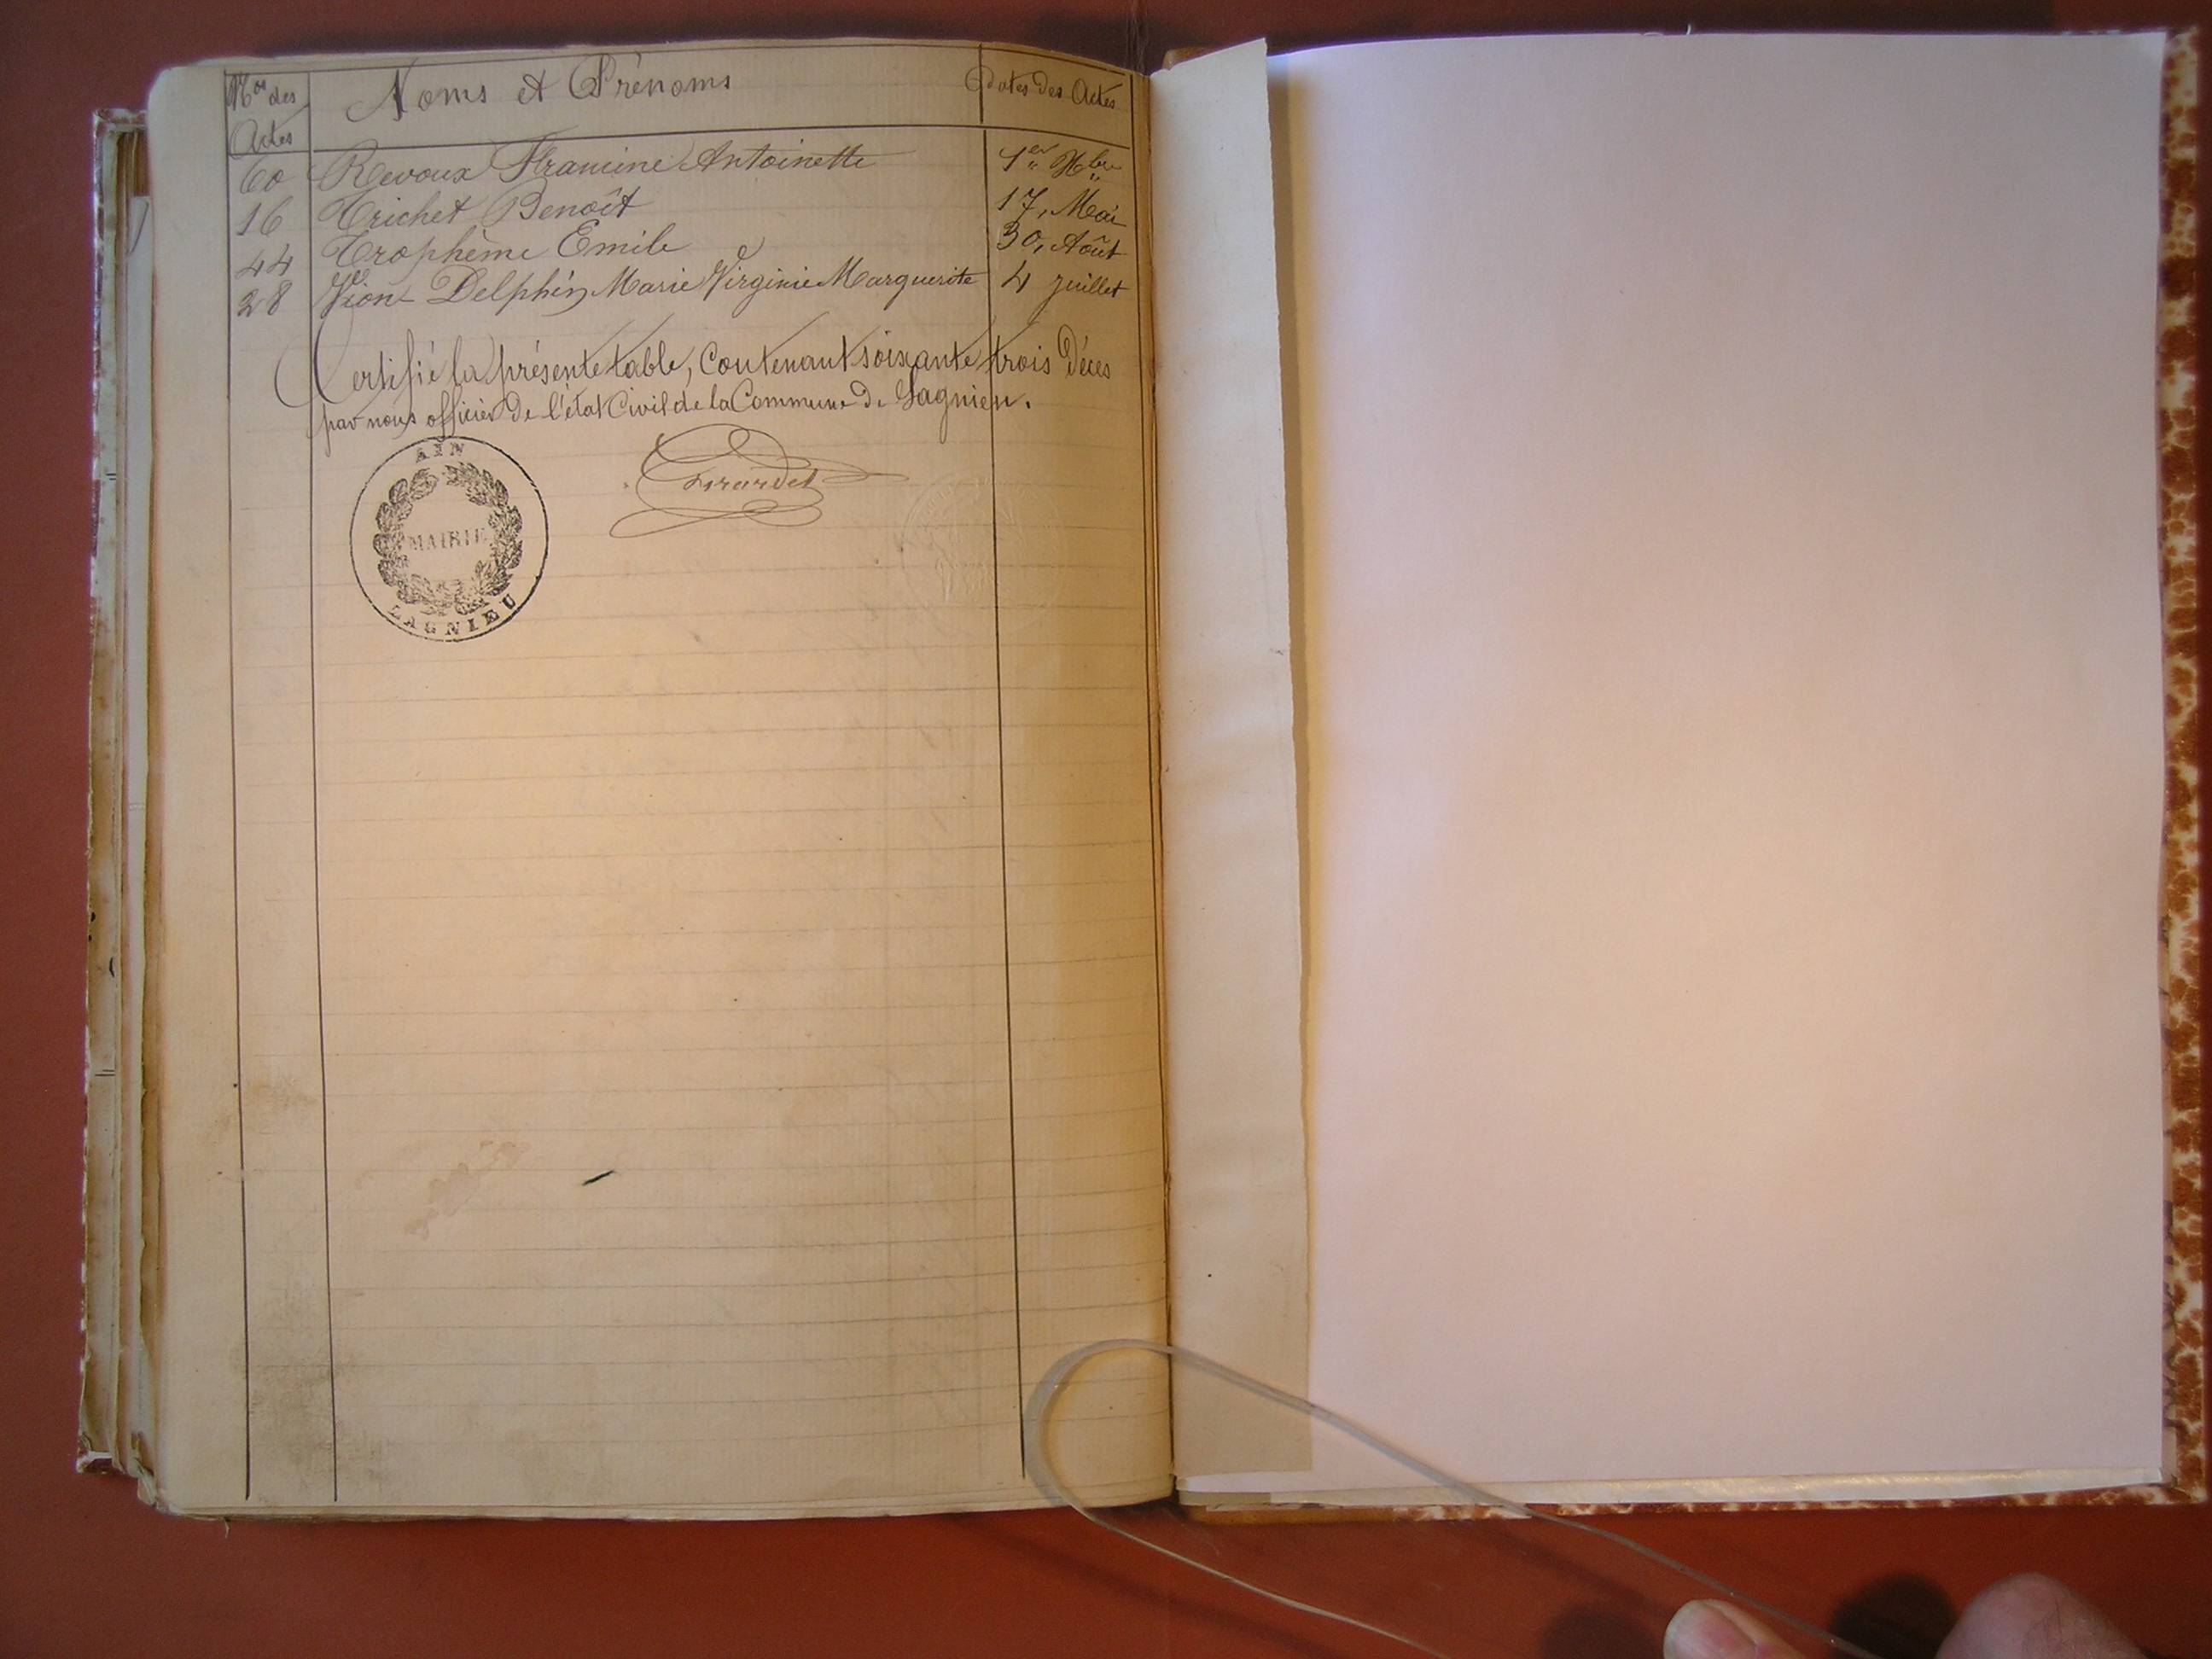 Nos des Actes Noms et Prénoms dates des Actes
60 Revoux Francine Antoinette 1er Xbre
16 Trichet Benoît 17, Mai
44 Trophème Emile 30, Août
28 Vion-Delphin Marie Virginie Marguerite 4 juillet
Certifié la présente table, Contenant soixante trois Décès
par nous officier de l'état Civil de la Commune de Lagnieu.
Girardet
AIN
MAIRIE
LAGNIEU